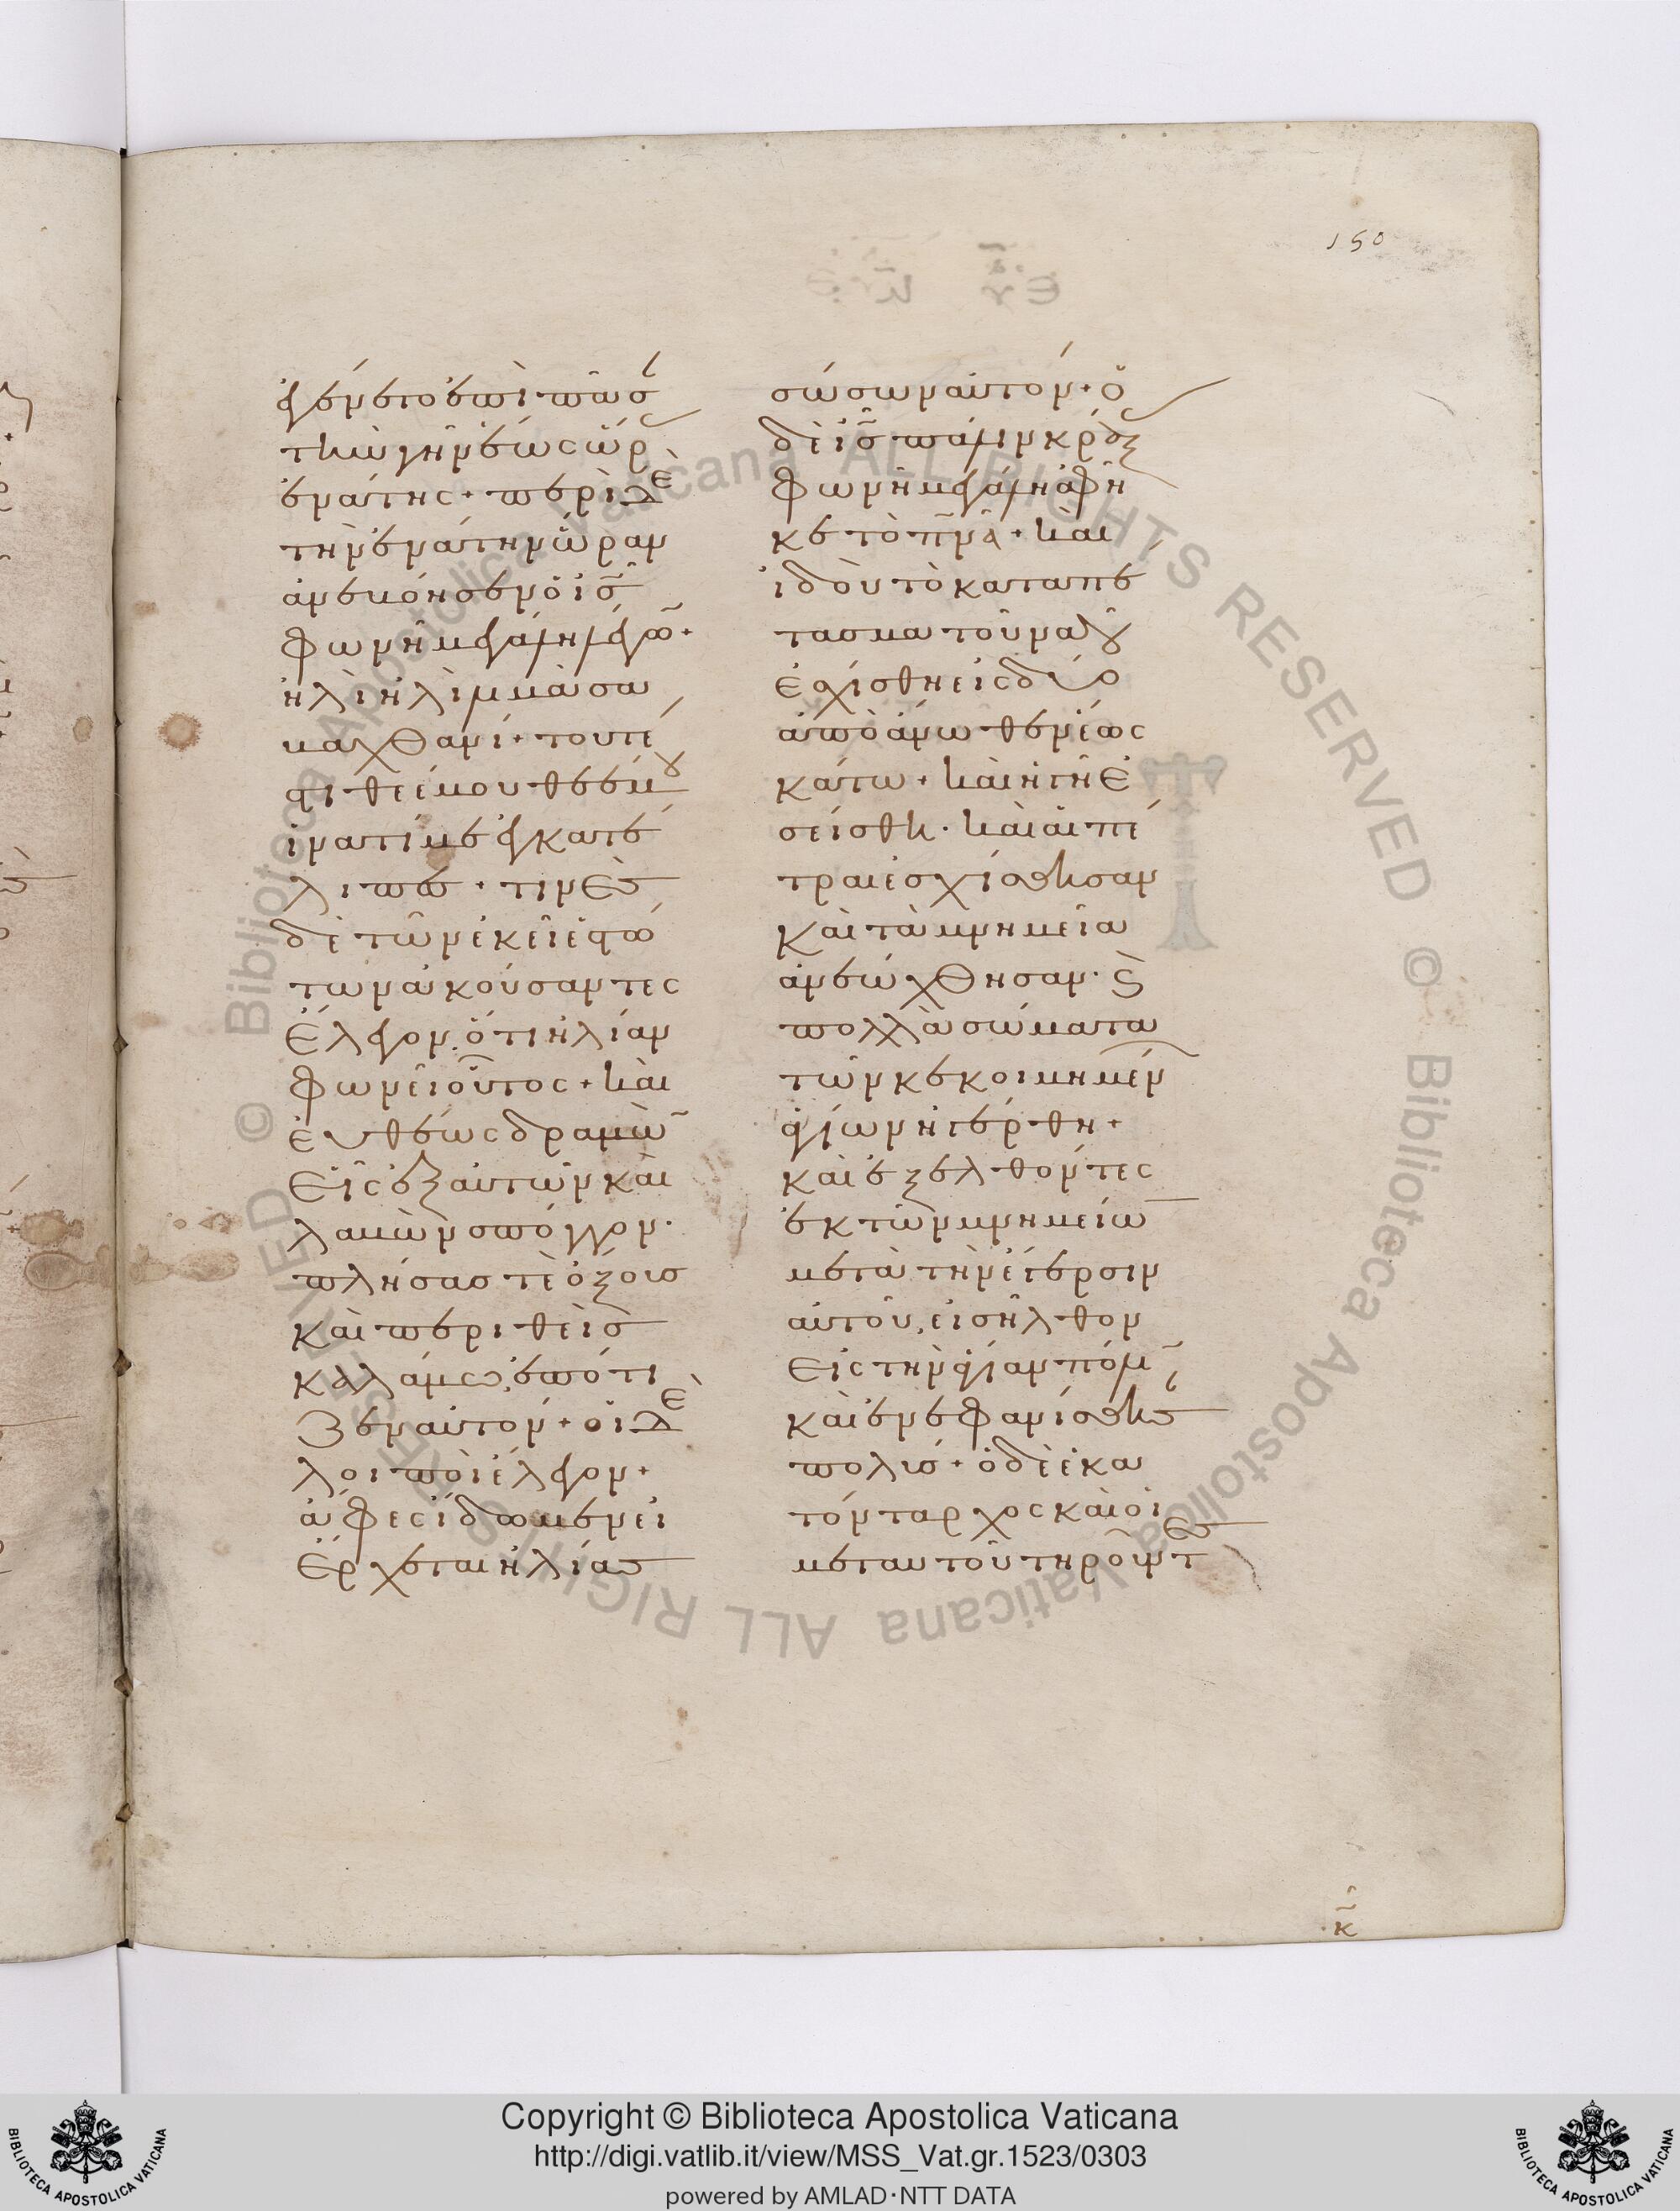 150
ἐγένετο ἐπὶ πᾶσ
τὴν γῆν ἕως ὥρ
ἐνάτης + περὶ δὲ
τὴν ἐνάτην ὥραν
ἀνεβόησεν ὁ ις
φωνῆ μεγάλη λέγω +
ἠλὶ ἠλὶ λιμμὰ σα
βαχθανί + τουτέ
στι θεέ μου θεέ μου
ἱνατί με ἐγκατέ
λιπες + τινὲς
δὲ τῶν ἐκεῖ ἑστώ
των ἀκούσαντες
ἔλεγον ὅτι ἠλίαν
φωνεῖ οὗτος + καὶ
ἐυθέως δραμὼ
εἷς ἐξ αὐτῶν καὶ
λαβὼν σπόγγον·
πλήσας τὲ ὄξους
καὶ περιθεὶς
καλάμω, ἐπότι
ζεν αὐτόν + οἱ δὲ
λοιποὶ ἔλεγον +
ἄφες ἴδωμεν εἰ
ἔρχεται ἠλίας
σώσων αὐτον + ὁ
δὲ ις πάλιν κράξ
φωνῆ μεγάλη ἀφῆ
κε τὸ πνα + καὶ
ἰδοὺ τὸ καταπέ
τασμα τοῦ ναοῦ
ἐσχίσθη εἰς δύο
ἀπὸ ἄνωθεν ἕως
κάτω + καὶ ἡ γῆ ἐ
σείσθη· καὶ αἱ πέ
τραι ἐσχίσθησαν
καὶ τὰ μνημεῖα
ἀνεώχθησαν· καὶ
πολλὰ σώματα
τῶν κεκοιμημέν
ἁγίων ἠγέρθη +
καὶ ἐξελθόντες
ἐκ τῶν μνημείω
μετὰ τὴν ἔγερσιν
αὐτοῦ, εἰσῆλθον
εἰς τὴν ἁγίαν πόλι
καὶ ἐνεφανίσθησ
πολλοῖς + ὁ δὲ ἑκα
τόνταρχος καὶ οἱ
μετ αυτοῦ τηροῦντες
κ
Copyright © Biblioteca Apostolica Vaticana
http://digi.vatlib.it/view/MSS_Vat.gr.1523/0303
powered by AMLAD·NTT DATA